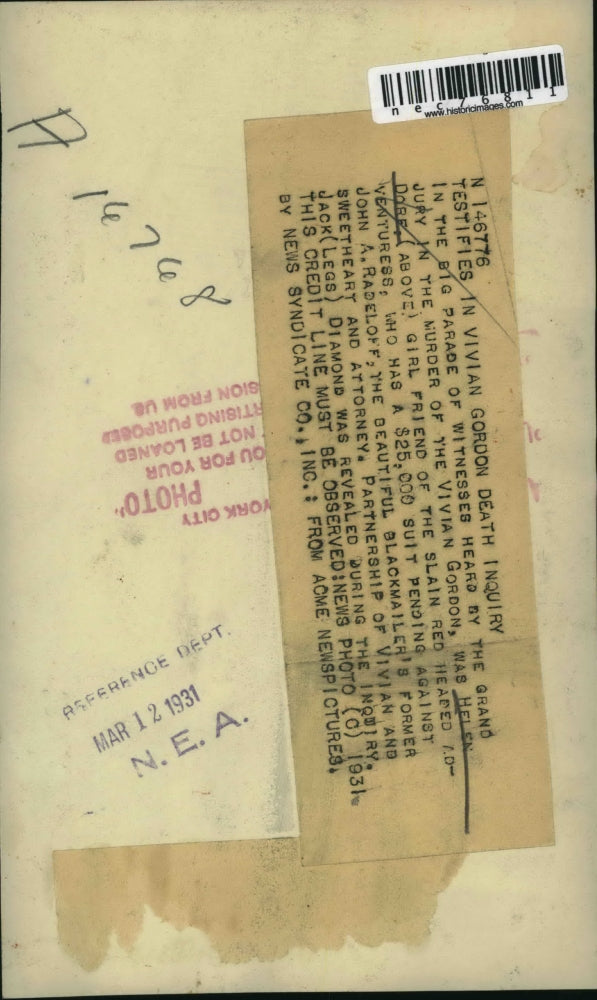 nec76811
www.historicimages.com
N 146776
TESTIFIES IN VIVIAN GORDON DEATH INQUIRY
IN THE BIG PARADE OF WITNESSES HEARD BY THE GRAND
JURY IN THE MURDER OF THE VIVIAN GORDON, WAS HELEN
DORF (ABOVE) GIRL FRIEND OF THE SLAIN RED HEADED AD-
VENTURESS, WHO HAS A $25,000 SUIT PENDING AGAINST
JOHN A. RADELOFF, THE BEAUTIFUL BLACKMAILER'S FORMER
SWEETHEART AND ATTORNEY. PARTNERSHIP OF VIVIAN AND
JACK(LEGS) DIAMOND WAS REVEALED DURING THE INQUIRY.
THIS CREDIT LINE MUST BE OBSERVED:NEWS PHOTO (C) 1931,
BY NEWS SYNDICATE CO., INC.: FROM ACME NEWSPICTURES.
YORK CITY
PHOTO
OU FOR YOUR
NOT BE LOANED
RTISING PURPOSES
SION FROM US
REFERENCE DEPT.
MAR 12 1931
N. E. A.